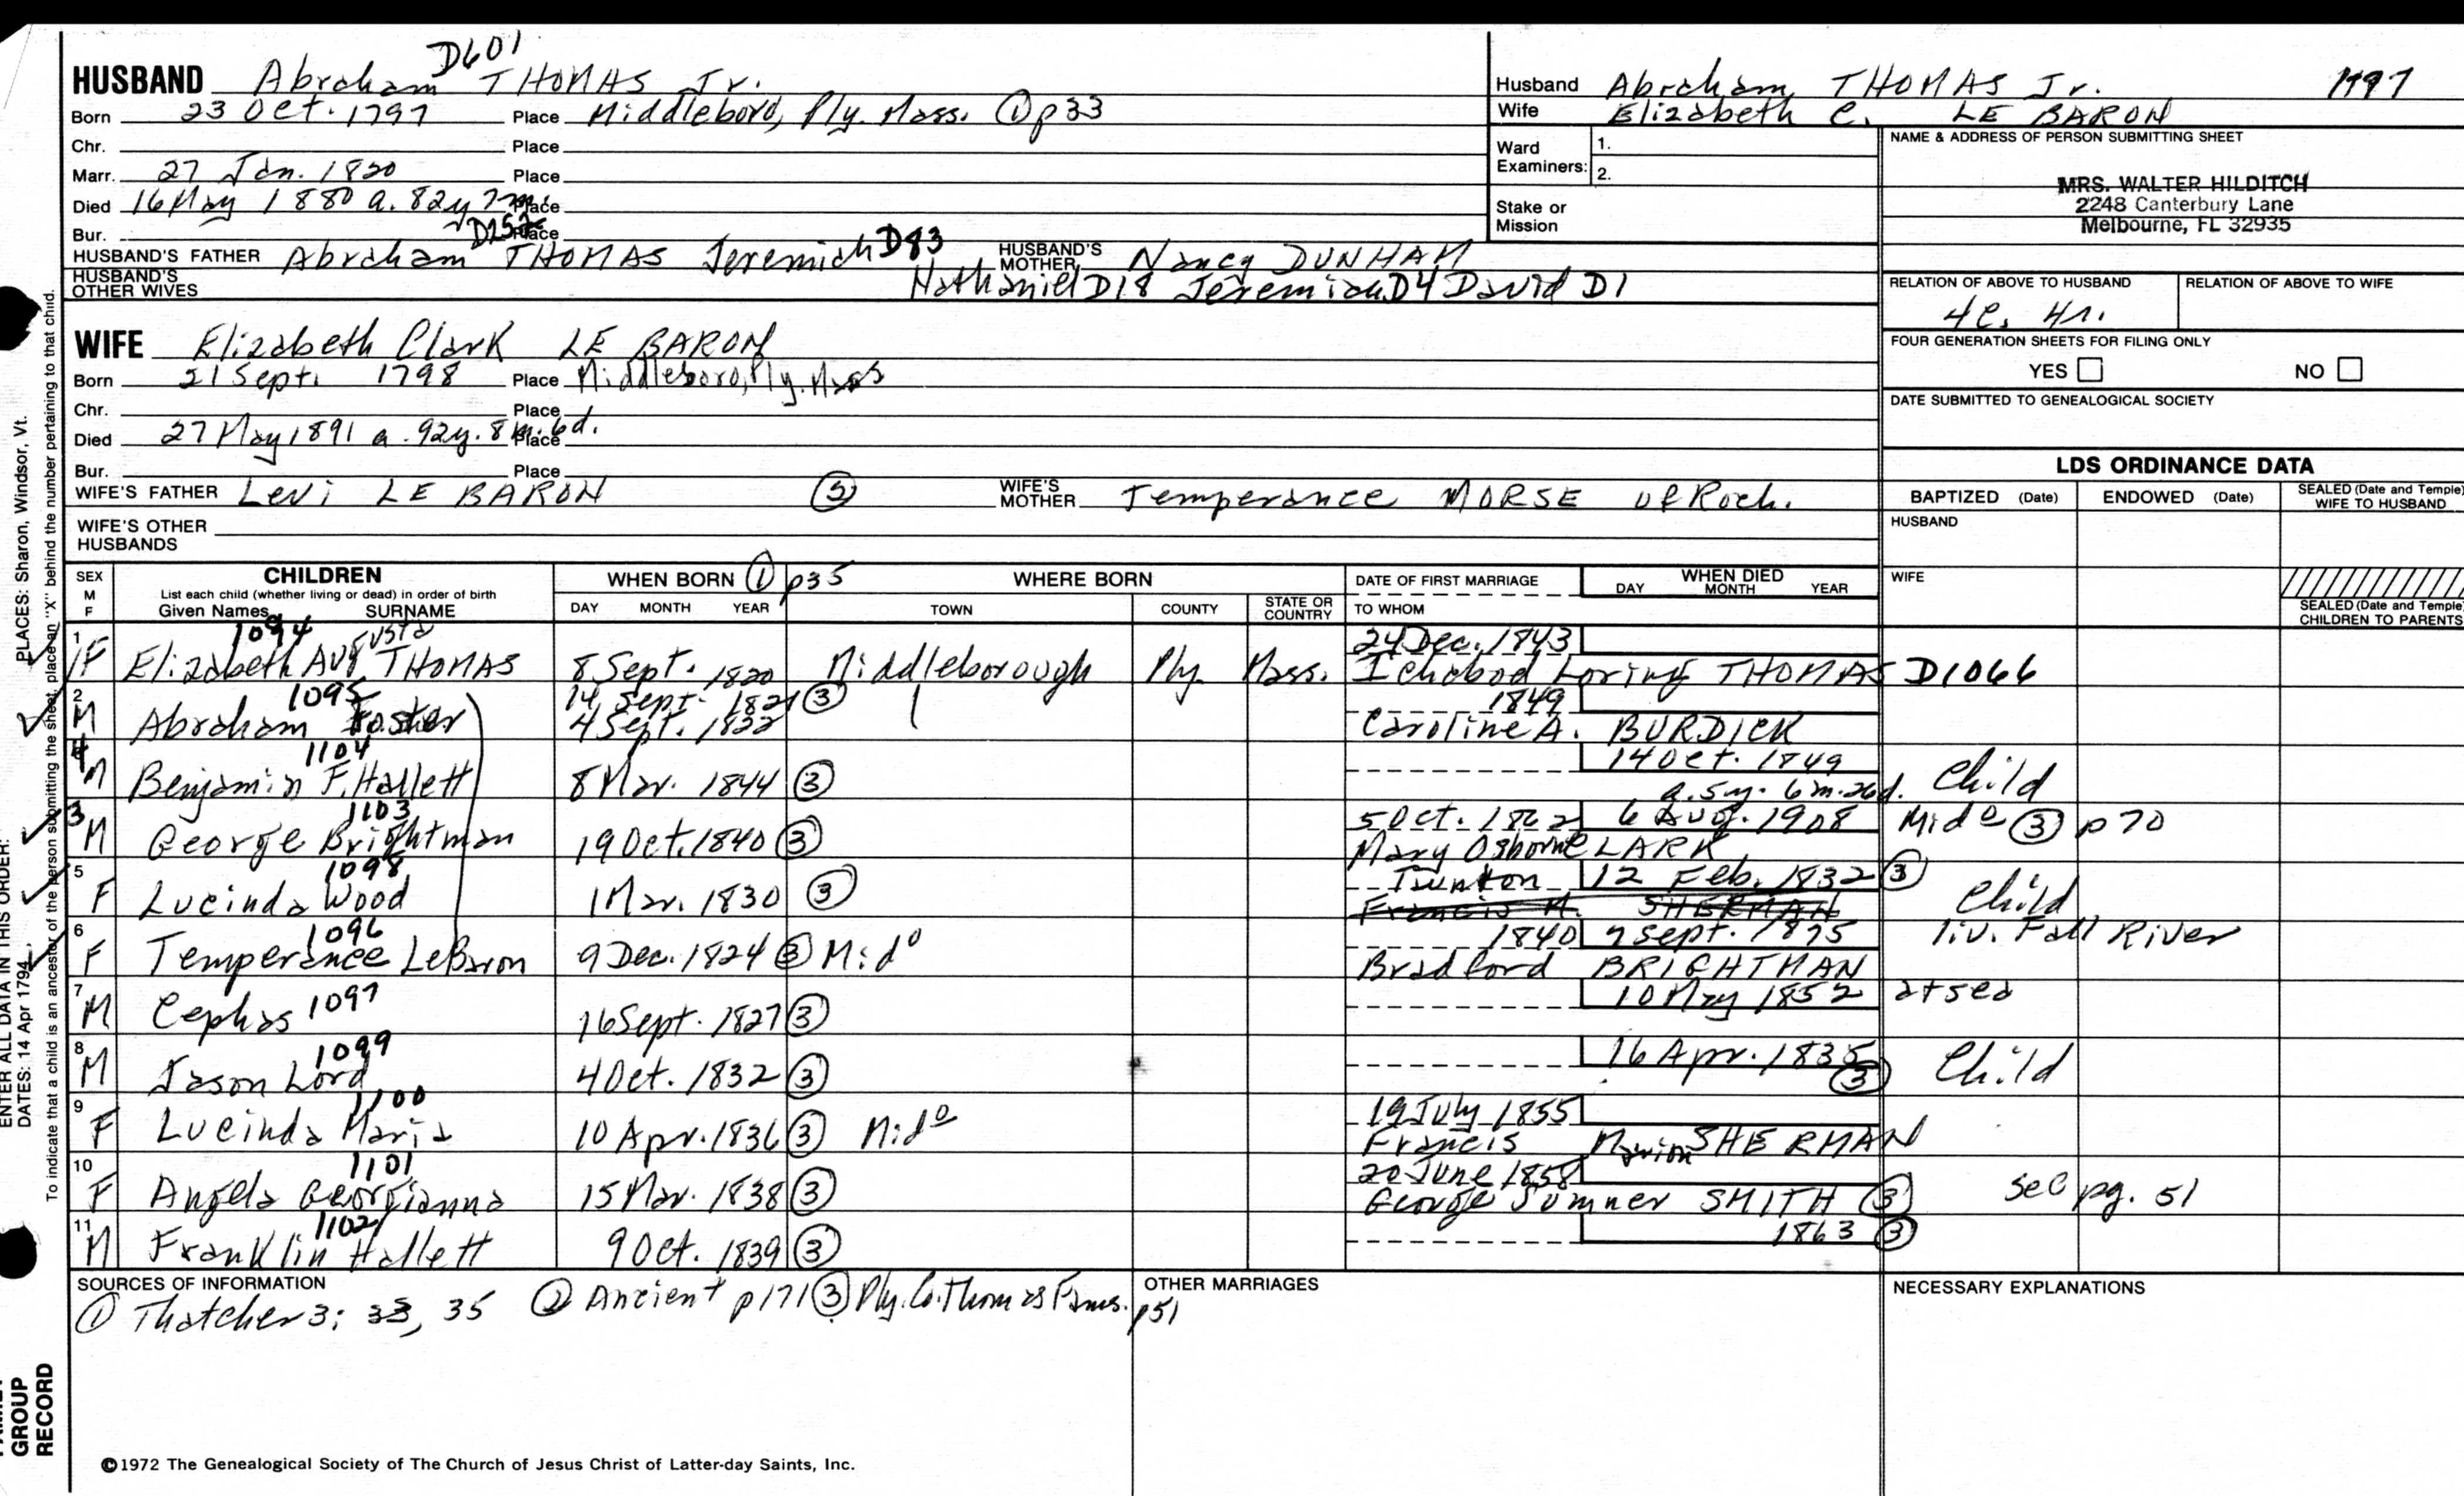 D601
HUSBAND Abraham THOMAS Jr.
Born 23 Oct. 1797 Place Middleboro, Ply. Mass. ① p33
Chr. Place
Marr. 27 Jan. 1820 Place
Died 16 May 1880 a. 82y 7m. Place
Bur. D252 Place
HUSBAND'S FATHER Abraham THOMAS Jeremiah D83 HUSBAND'S MOTHER Nancy DUNHAM
HUSBAND'S OTHER WIVES Nathaniel D18 Jeremiah D4 David D1
WIFE Elizabeth Clark LE BARON
Born 21 Sept. 1798 Place Middleboro, Ply. Mass
Chr. Place
Died 27 May 1891 a. 92y. 8m. 6d. Place
Bur. Place
WIFE'S FATHER Levi LE BARON ⑤ WIFE'S MOTHER Temperance MORSE of Roch.
WIFE'S OTHER HUSBANDS
Husband Abraham THOMAS Jr. 1797
Wife Elizabeth C. LE BARON
Ward Examiners: 1.
2.
Stake or Mission
NAME & ADDRESS OF PERSON SUBMITTING SHEET
MRS. WALTER HILDITCH
2248 Canterbury Lane
Melbourne, FL 32935
RELATION OF ABOVE TO HUSBAND RELATION OF ABOVE TO WIFE
4c. 4r.
FOUR GENERATION SHEETS FOR FILING ONLY
YES NO
DATE SUBMITTED TO GENEALOGICAL SOCIETY
LDS ORDINANCE DATA
BAPTIZED (Date) ENDOWED (Date) SEALED (Date and Temple) WIFE TO HUSBAND
HUSBAND
WIFE
SEALED (Date and Temple) CHILDREN TO PARENTS
SEX M F CHILDREN WHEN BORN ① p35 WHERE BORN DATE OF FIRST MARRIAGE WHEN DIED
List each child (whether living or dead) in order of birth
Given Names SURNAME DAY MONTH YEAR TOWN COUNTY STATE OR COUNTRY TO WHOM DAY MONTH YEAR
1094 24 Dec. 1843
1 F Elizabeth Augusta THOMAS 8 Sept. 1820 Middleborough Ply Mass. Ichabod Loring THOMAS D1066
1095 14 Sept. 1821 ③ 1849
2 M Abraham Foster 4 Sept. 1822 Caroline A. BURDICK
1104 14 Oct. 1849
4 M Benjamin F. Hallett 8 Mar. 1844 ③ a. 5y. 6m. 26d. Child
1103 5 Oct. 1862 6 Aug. 1908 Mido ③ p70
3 M George Brightman 19 Oct. 1840 ③ Mary Osborne CLARK
1098 Taunton 12 Feb. 1832 ③
5 F Lucinda Wood 1 Mar. 1830 ③ Francis M. SHERMAN Child
1096 1840 9 Sept. 1875 liv. Fall River
6 F Temperance LeBaron 9 Dec. 1824 ③ Mido Bradford BRIGHTMAN
7 M Cephas 1097 16 Sept. 1827 ③ 10 May 1852 at sea
1099
8 M Jason Lord 4 Oct. 1832 ③ 16 Apr. 1835 ③ Child
1100 19 July 1855
9 F Lucinda Maria 10 Apr. 1836 ③ Mido Francis Marion SHERMAN
1101 20 June 1858
10 F Angela Georgianna 15 Mar. 1838 ③ George Sumner SMITH ③ see pg. 51
1102
11 M Franklin Hallett 9 Oct. 1839 ③ 1863 ③
SOURCES OF INFORMATION OTHER MARRIAGES NECESSARY EXPLANATIONS
① Thatcher 3: 33, 35 ② Ancient p171 ③ Ply. Co. Thomas Fams. p51
©1972 The Genealogical Society of The Church of Jesus Christ of Latter-day Saints, Inc.
ENTER ALL DATA IN THIS ORDER:
DATES: 14 Apr 1794 PLACES: Sharon, Windsor, Vt.
To indicate that a child is an ancestor of the person submitting the sheet, place an "X" behind the number pertaining to that child.
GROUP
RECORD